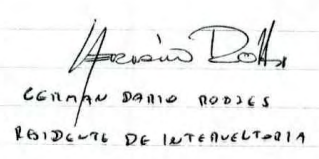 GERMAN DARIO RODJES
RESIDENTE DE INTERVENTORIA